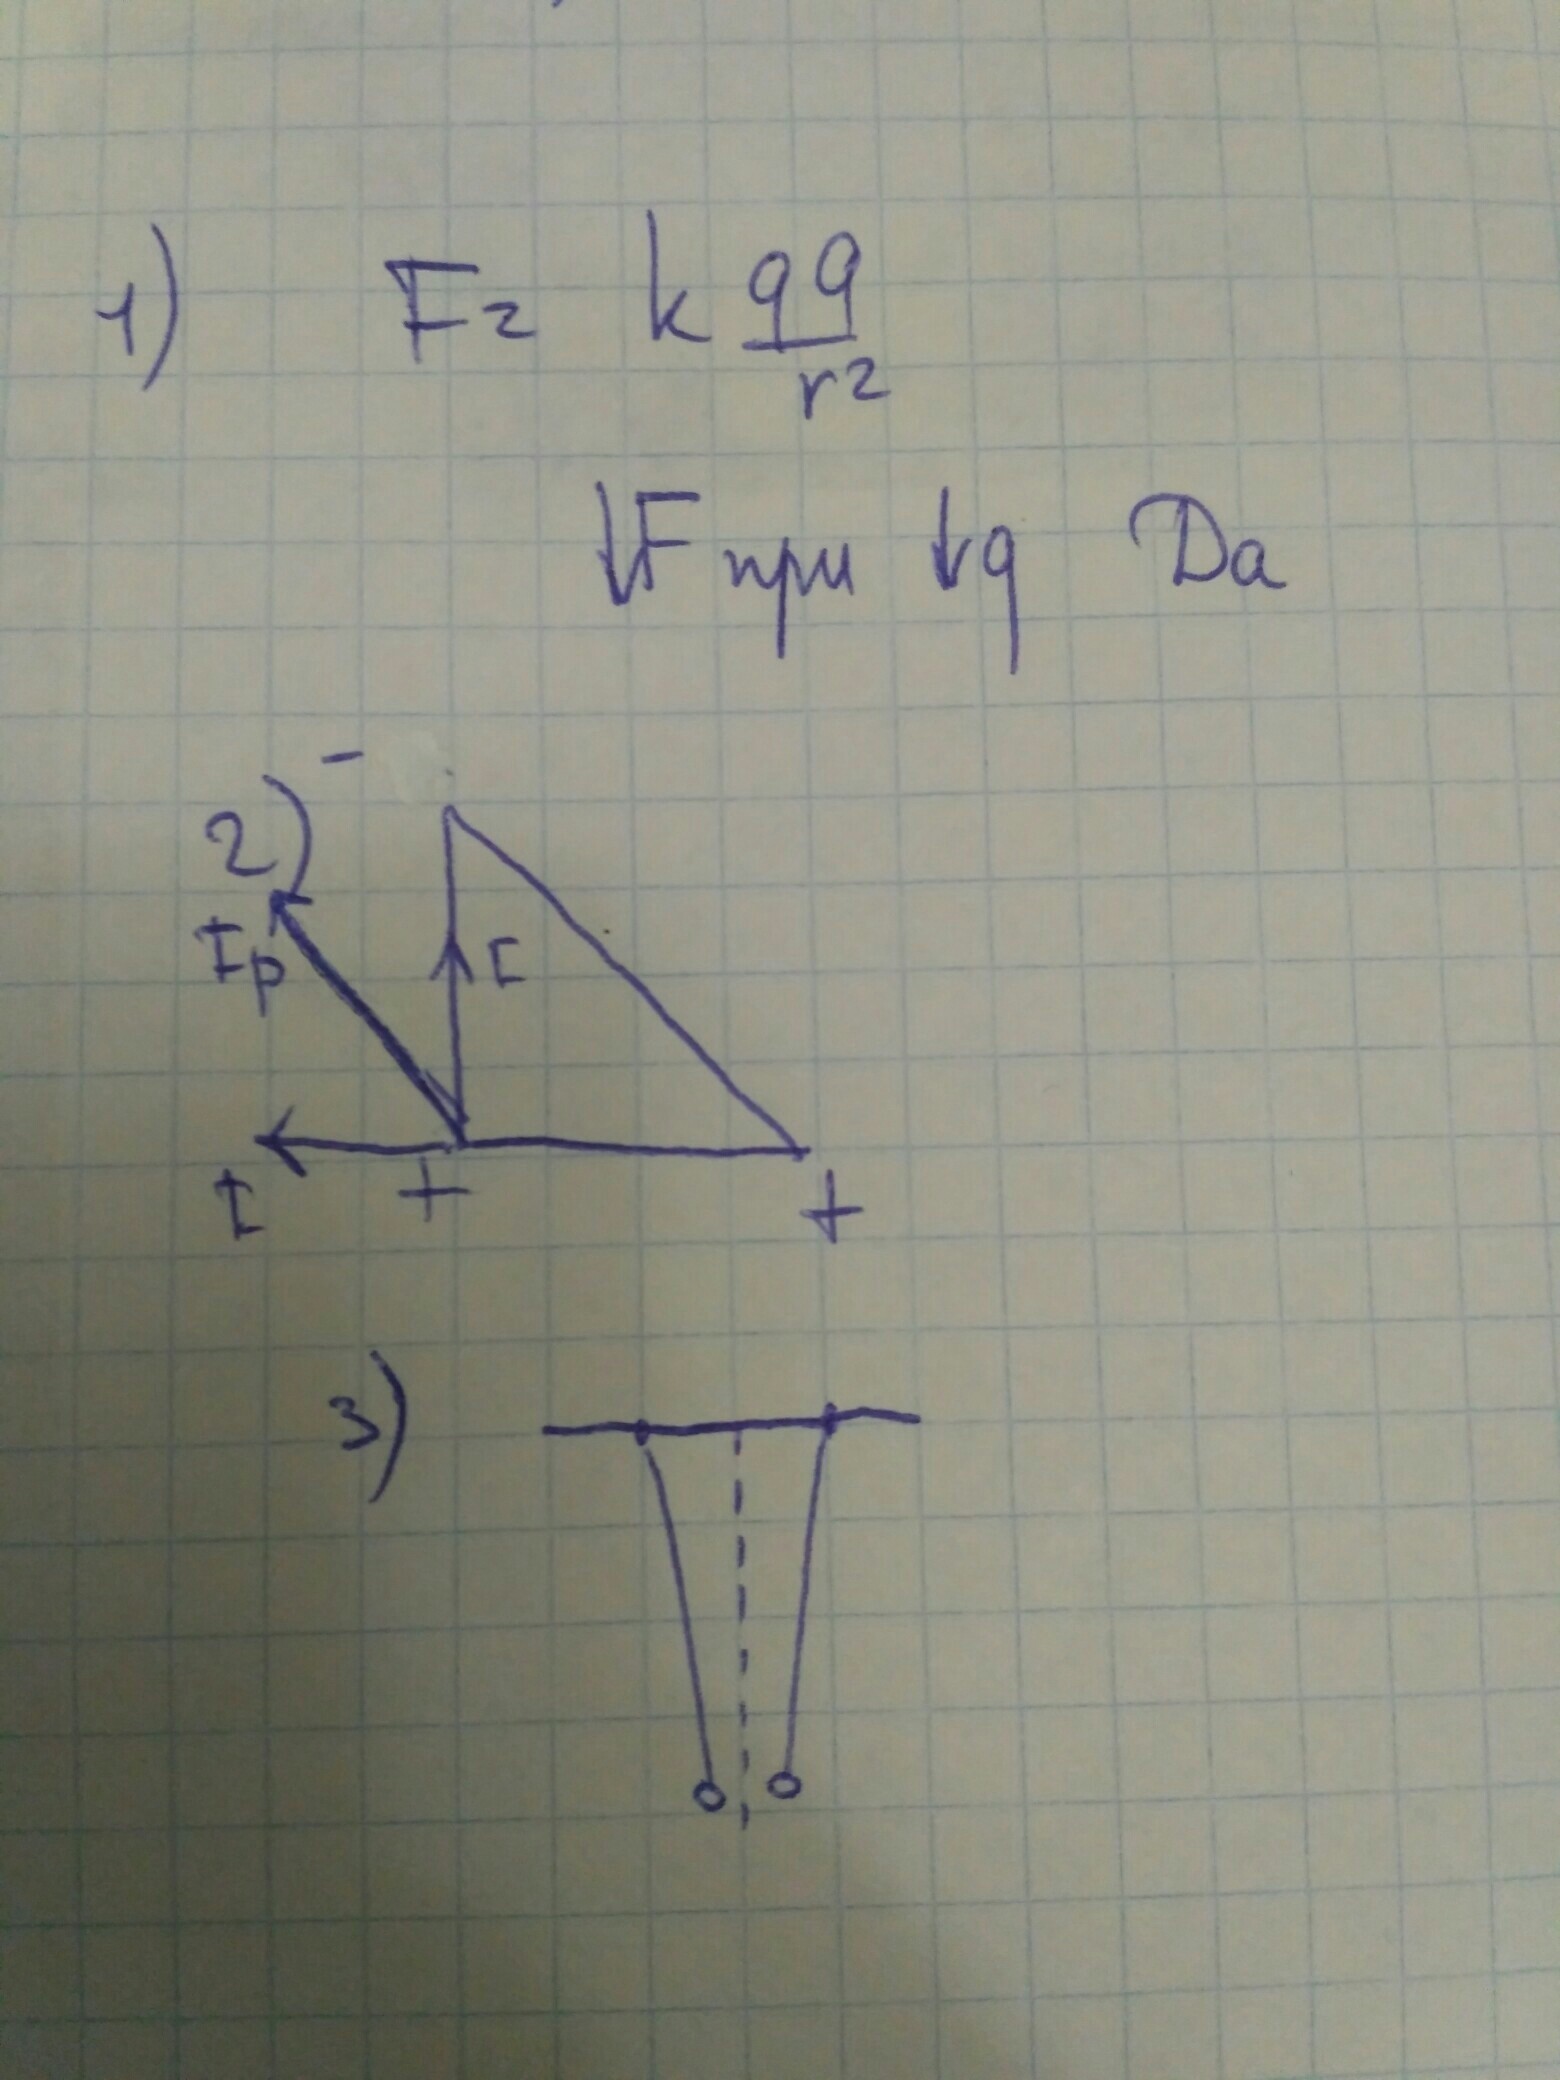 1) F = k qq
r²
↓F при ↓q Да
2) -
Fр
F
F + +
3)